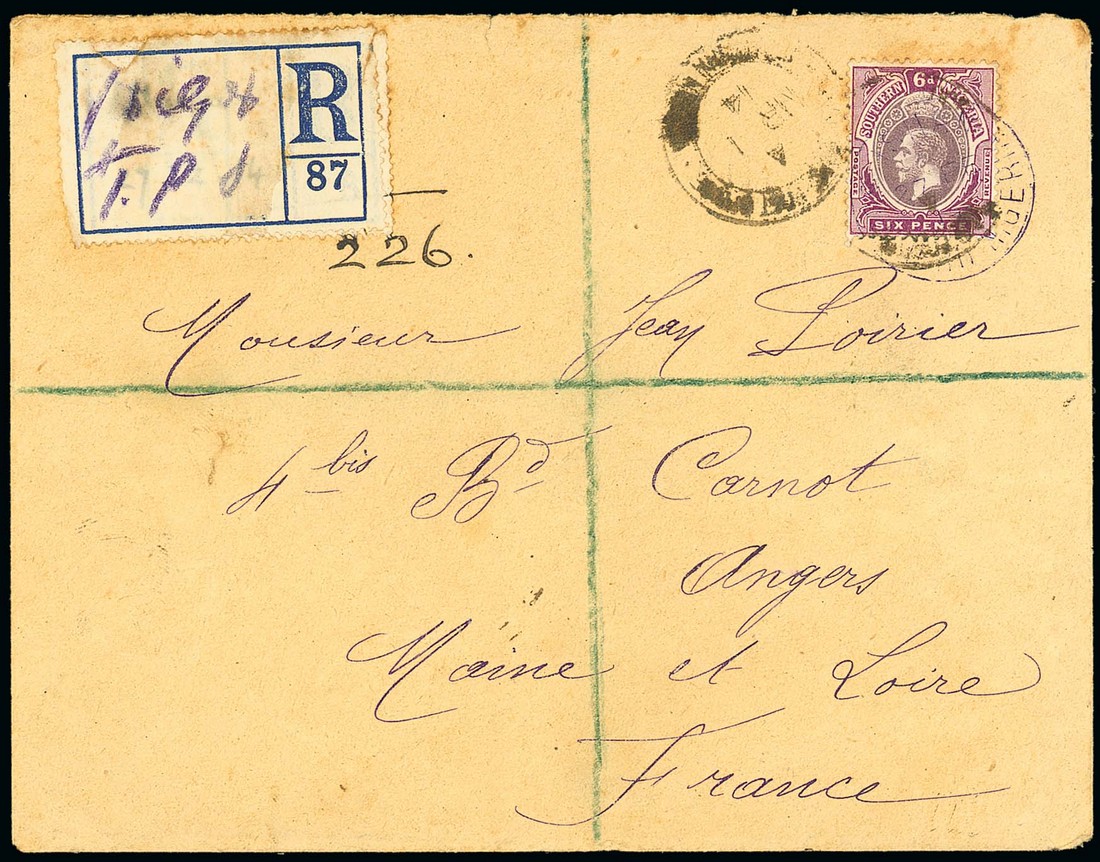 R
87
T.P.
226.
SOUTHERN 6d NIGERIA
POSTAGE
REVENUE
SIX PENCE
Monsieur Jean Poirier
4 bis Bd Carnot
Angers
Maine et Loire
France